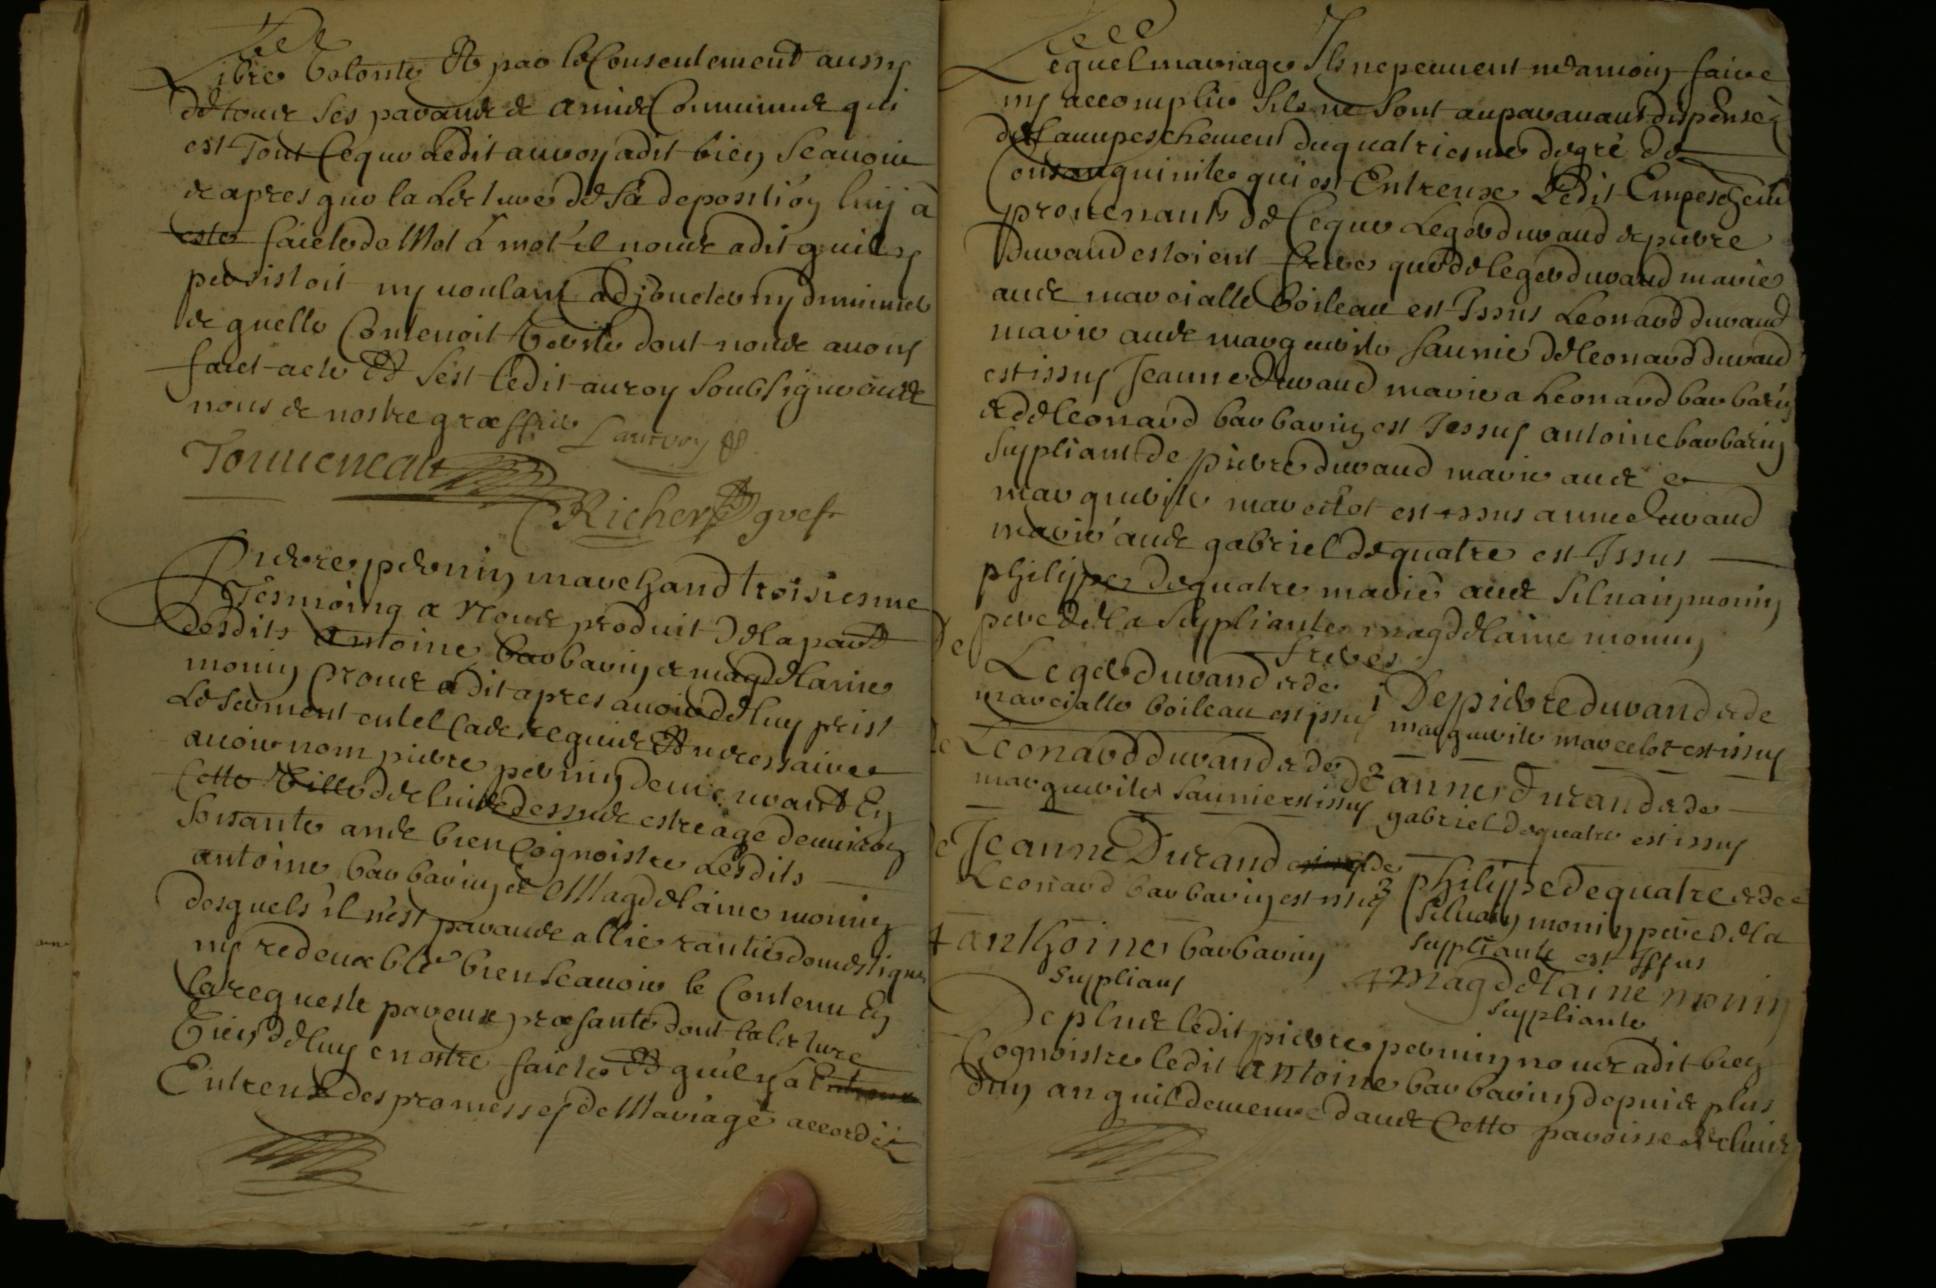 Libre volonté Et par le Consentement aussy
de tous ses parants et amis Communs qui
est Tout Ceque Ledit auroy a dit bien Scauoir
et apres que la Lecture de Sa deposition luy a
esté faicte de Mot a mot il nous a dit quil y
persistoit ny voulant adjouter ny diminuer
et quelle Contenoit Verité dont nous auons
faict acte Et sest ledit auroy soubsigné auec
nous et nostre greffier Lauroy
Touueneau
Richer greff
Pierre pernin marchand troisiesme
Tesmoing a Nous produit de la part
desdits Antoine barbarin et magdelaine
monin Nous a dit apres auoir de luy prist
Le serment en tel Cas requis Et necessaire
auoir nom pierre pernin demeurant En
Cette Ville de estre age denuiron
soixante ans bien Cognoistre Lesdits
antoine barbarin et Magdelaine monin
desquels il n'est parant allie domestique
ny redeuable bien Scauoir le Contenu En
la requeste par eux presante dont la lecture
Vient de luy en estre faicte Et quil y a
Entreux des promesses de Mariage accordé
Lequel mariage Ils ne peuuent neamoin faire
ny accomplir Sils ne Sont auparauant dispensé
de Lampeschement du quatriesme degré de
Consanguinité qui est Entreux Ledit Empeschem
prouenant de Ceque Leger durand et pierre
Durand estoient freres que de leger durand marie
auec marcialle boileau est Issus Leonard durand
marie auec marguerite saunier de leonard durand
est issus Jeanne durand marie a Leonard barbarin
et de leonard barbarin est Issus antoine barbarin
Suppliant de pierre durand marie auec
marguerite marcelot est issus anne durand
marie auec gabriel dequatre est Issus
philippe dequatre marié auec siluain monin
pere de la Suppliante magdelaine monin
freres
De Leger durand et de
marcialle boileau est issus
1 De pierre durand et de
marguerite marcelot est issus
de Leonard durand et de
marguerite saunier est issus
de 2 anne Durand et de
gabriel dequatre est issus
de Jeanne Durand et de
Leonard barbarin est issus
3 philippe dequatre et de
siluain monin pere de la
suppliante est Issus
4 anthoine barbarin
suppliant
4 Magdelaine monin
suppliante
De plus ledit pierre pernin nous a dit bien
Cognoistre ledit antoine barbarin depuis plus
dun an quil demeure dans Cette paroisse